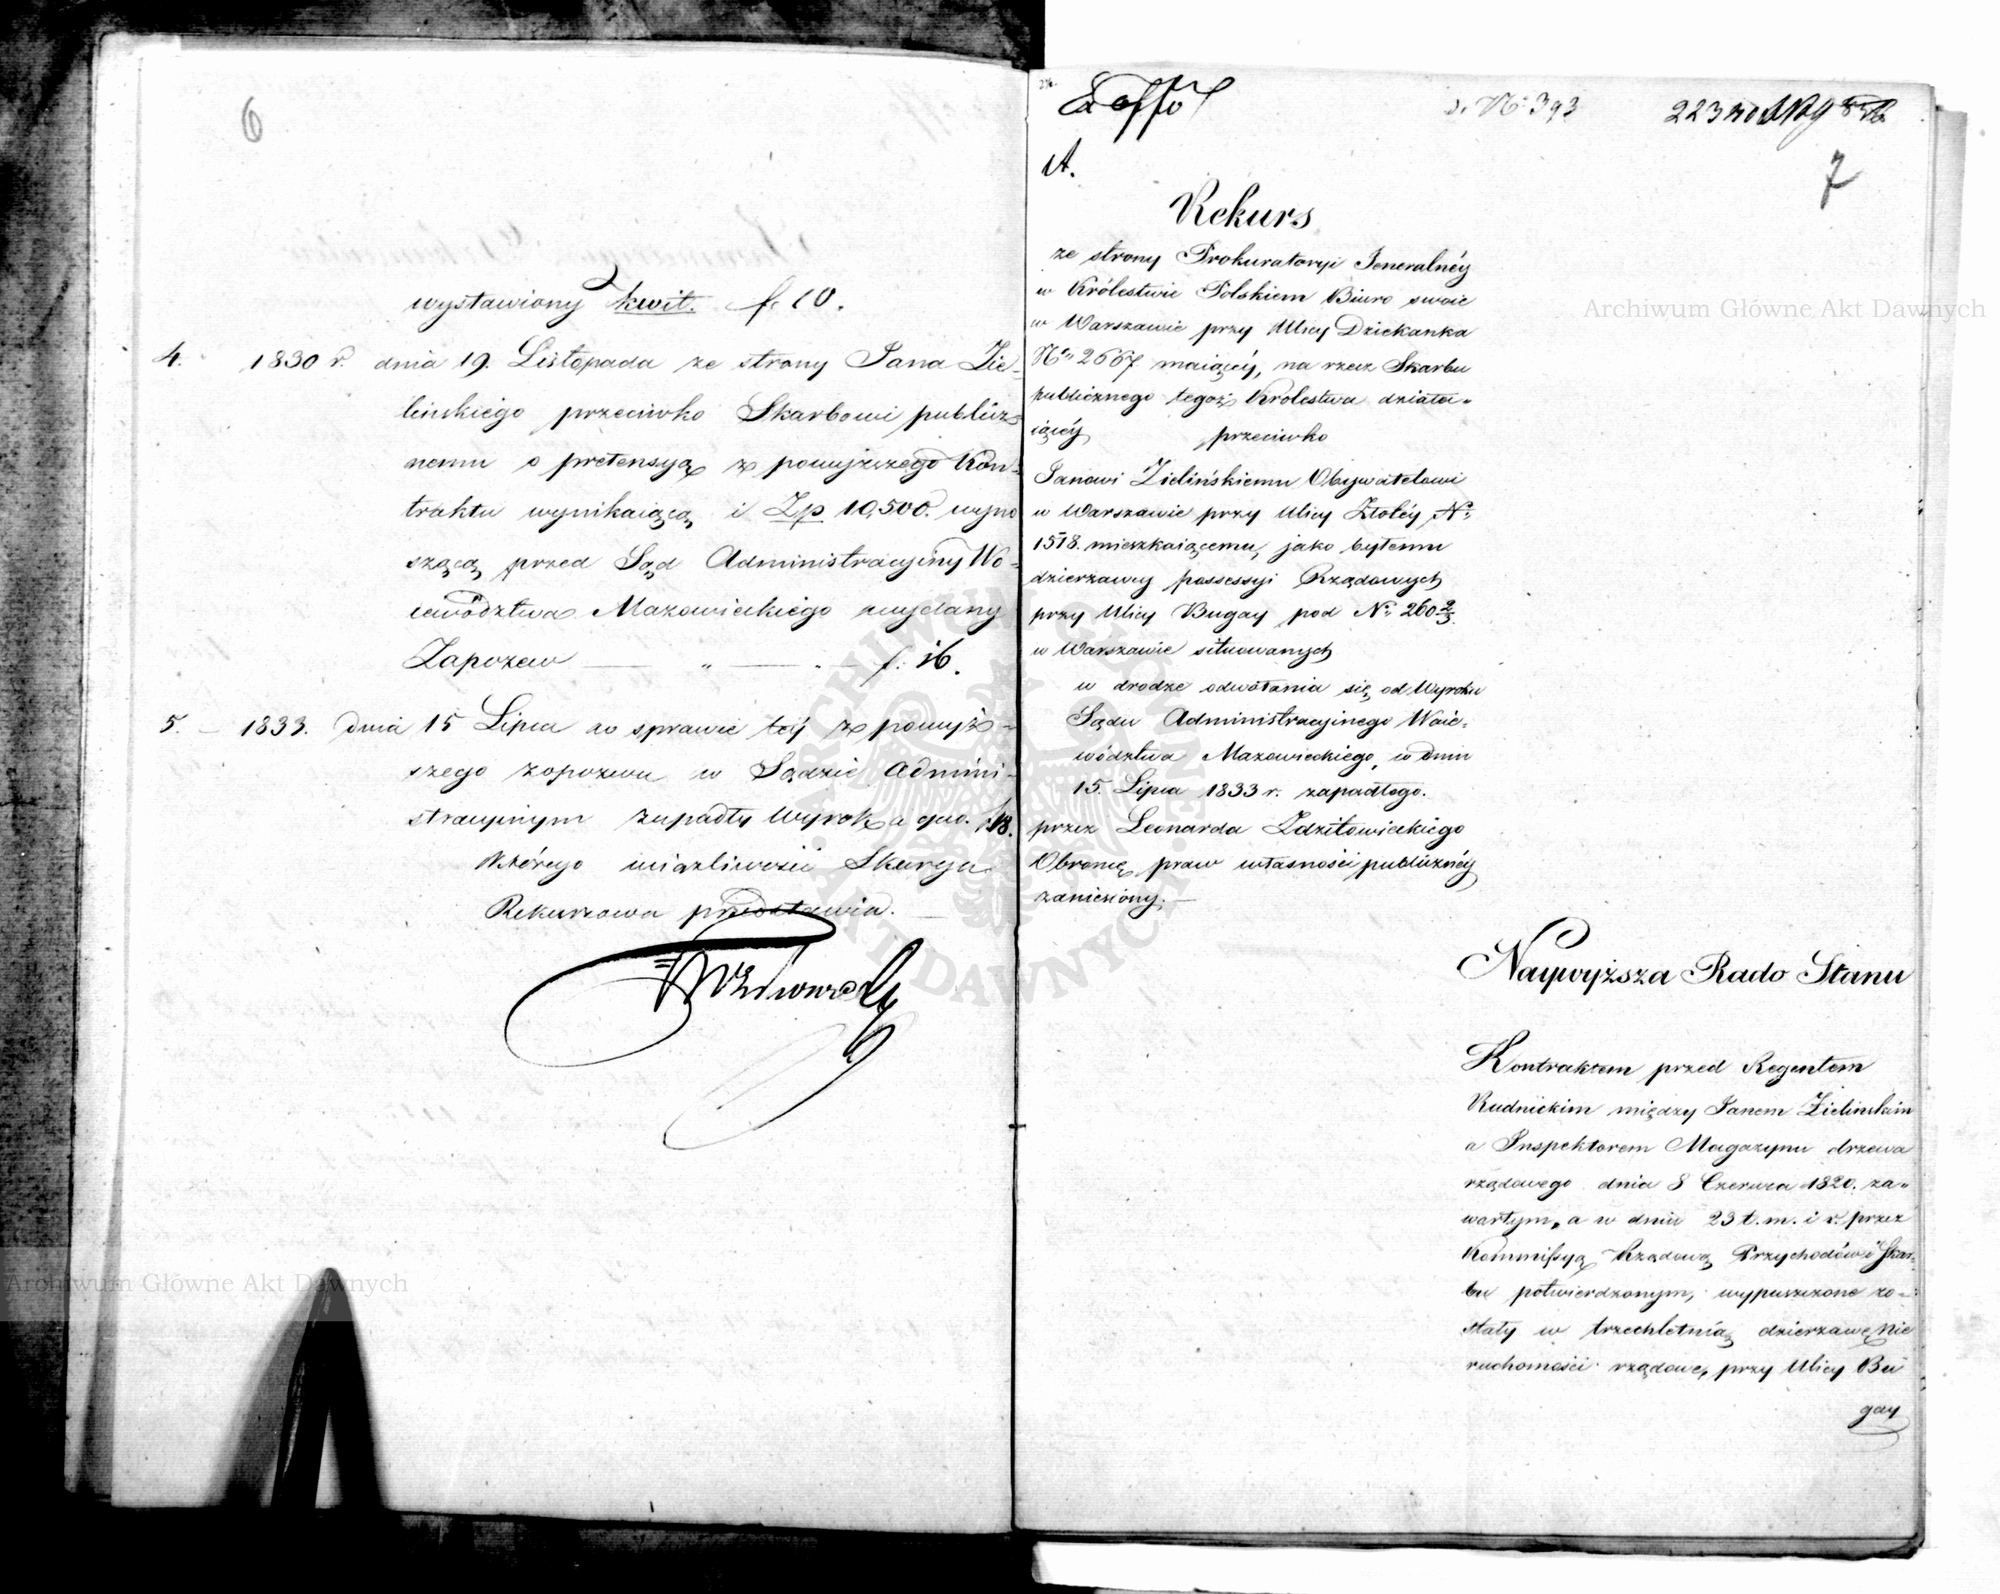 6
wystawiony kwit. f. 10.
4. 1830 r. dnia 19. Listopada ze strony Jana Zie-
lińskiégo przeciwko Skarbowi publicz-
nemu o pretensyą z powyższego Kon-
traktu wynikaiącą i Zp 10,500. wyno
szącą przed Sąd Administracyiny Wo-
iewództwa Mazowieckiégo wydany
Zapozew — „ — . — f. 16.
5. — 1833. dnia 15 Lipca w sprawie téj z powyż-
szego zapozewu w Sądzie Admini-
stracyinym zapadły Wyrok a quo. f. 18.
Którego uciążliwość Skarga
Rekursowa przedstawia. —
7
A.
N° 393
Rekurs
ze strony Prokuratoryi Jeneralnéy
w Królestwie Polskiem Biuro swoie
w Warszawie przy Ulicy Dziekanka
N° 2667 maiącéy, na rzecz Skarbu
publicznego tegoż Królestwa działa-
iącéy przeciwko
Janowi Zielińskiemu Obywatelowi
w Warszawie przy Ulicy Złotéy N°
1518. mieszkaiącemu, jako byłemu
dzierżawcy possessyi Rządowych
przy Ulicy Bugay pod N° 260 2/3.
w Warszawie situowanych
w drodze odwołania się od Wyroku
Sądu Administracyinego Woie-
wództwa Mazowieckiego, w dniu
15. Lipca 1833 r. zapadłego.
przez Leonarda Zdzitowieckiégo
Obrońcę praw własności publicznéy
zaniesiony. —
Naywyższa Rado Stanu
Kontraktem przed Regentem
Rudnickim między Janem Zielińskim
a Inspektorem Magazynu drzewa
rządowego dnia 8 Czerwca 1820. za-
wartym, a w dniu 23 t. m. i r. przez
Kommissyą Rządową Przychodów i Skar-
bu potwierdzonym, wypuszczone zo-
stały w trzechletnią dzierżawę Nie
ruchomości rządowe, przy Ulicy Bu
gay
Archiwum Główne Akt Dawnych
Archiwum Główne Akt Dawnych
ARCHIWUM GŁÓWNE AKT DAWNYCH